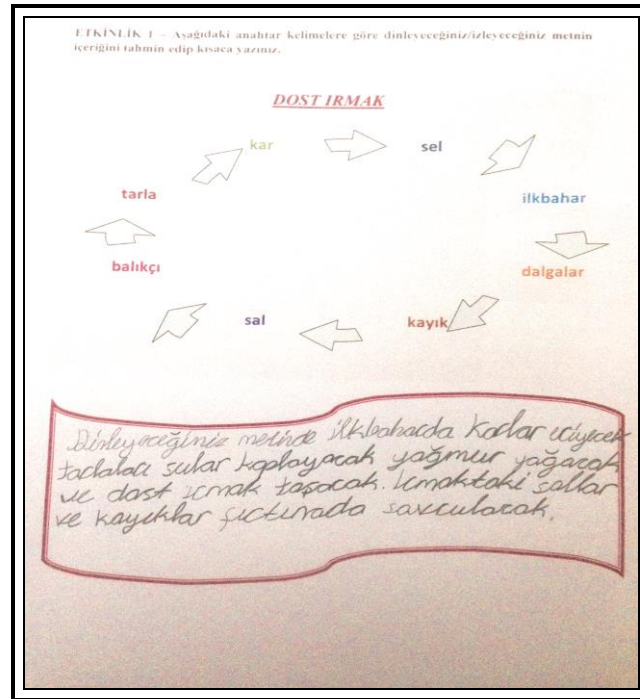 ETKİNLİK 1 – Aşağıdaki anahtar kelimelere göre dinleyeceğiniz/izleyeceğiniz metnin
içeriğini tahmin edip kısaca yazınız.
DOST IRMAK
kar
sel
tarla
ilkbahar
balıkçı
dalgalar
sal
kayık
Dinleyeceğiniz metinde ilkbaharda karlar eriyecek
tarlaları sular kaplayacak yağmur yağacak
ve dost ırmak taşacak. Irmaktaki sallar
ve kayıklar fırtınada savrulacak.